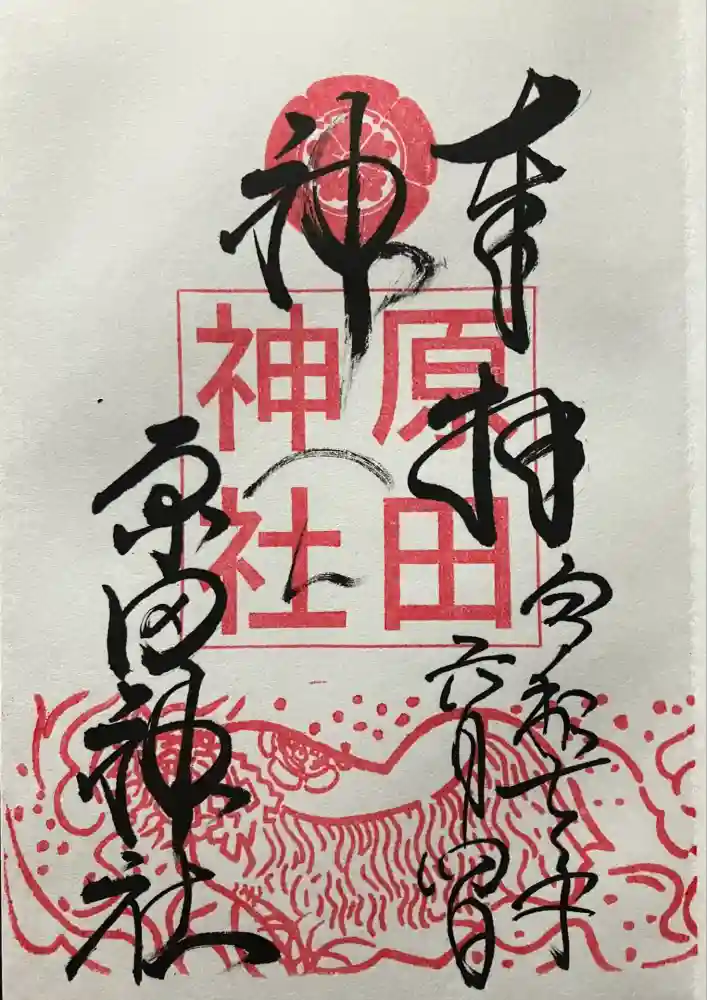 奉拝
令和七年
六月四日
神
原田
神社
原田神社